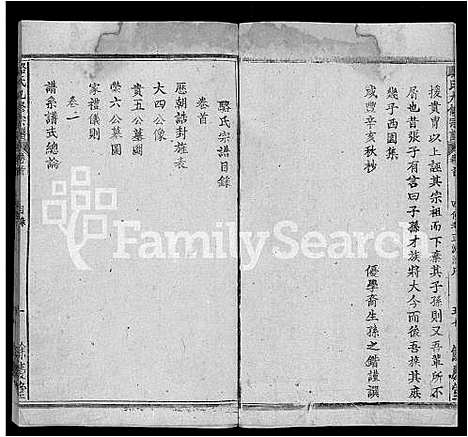 援貴冑以上誣其宗祖而下棄其子孫則又吾輩所不
屑也昔張子有言曰子孫才族將大今而後吾換其底
幾乎西園集
咸豐辛亥秋抄
優學裔生孫之鍇謹撰
餘慶堂
駱氏宗譜目錄
卷首
歷朝誥封旌表
大四公像
貴五公墓圖
榮六公墓圖
家禮儀則
卷二
譜系譜式總論
駱氏九修宗譜
卷首
目錄
一
餘慶堂
FamilySearch